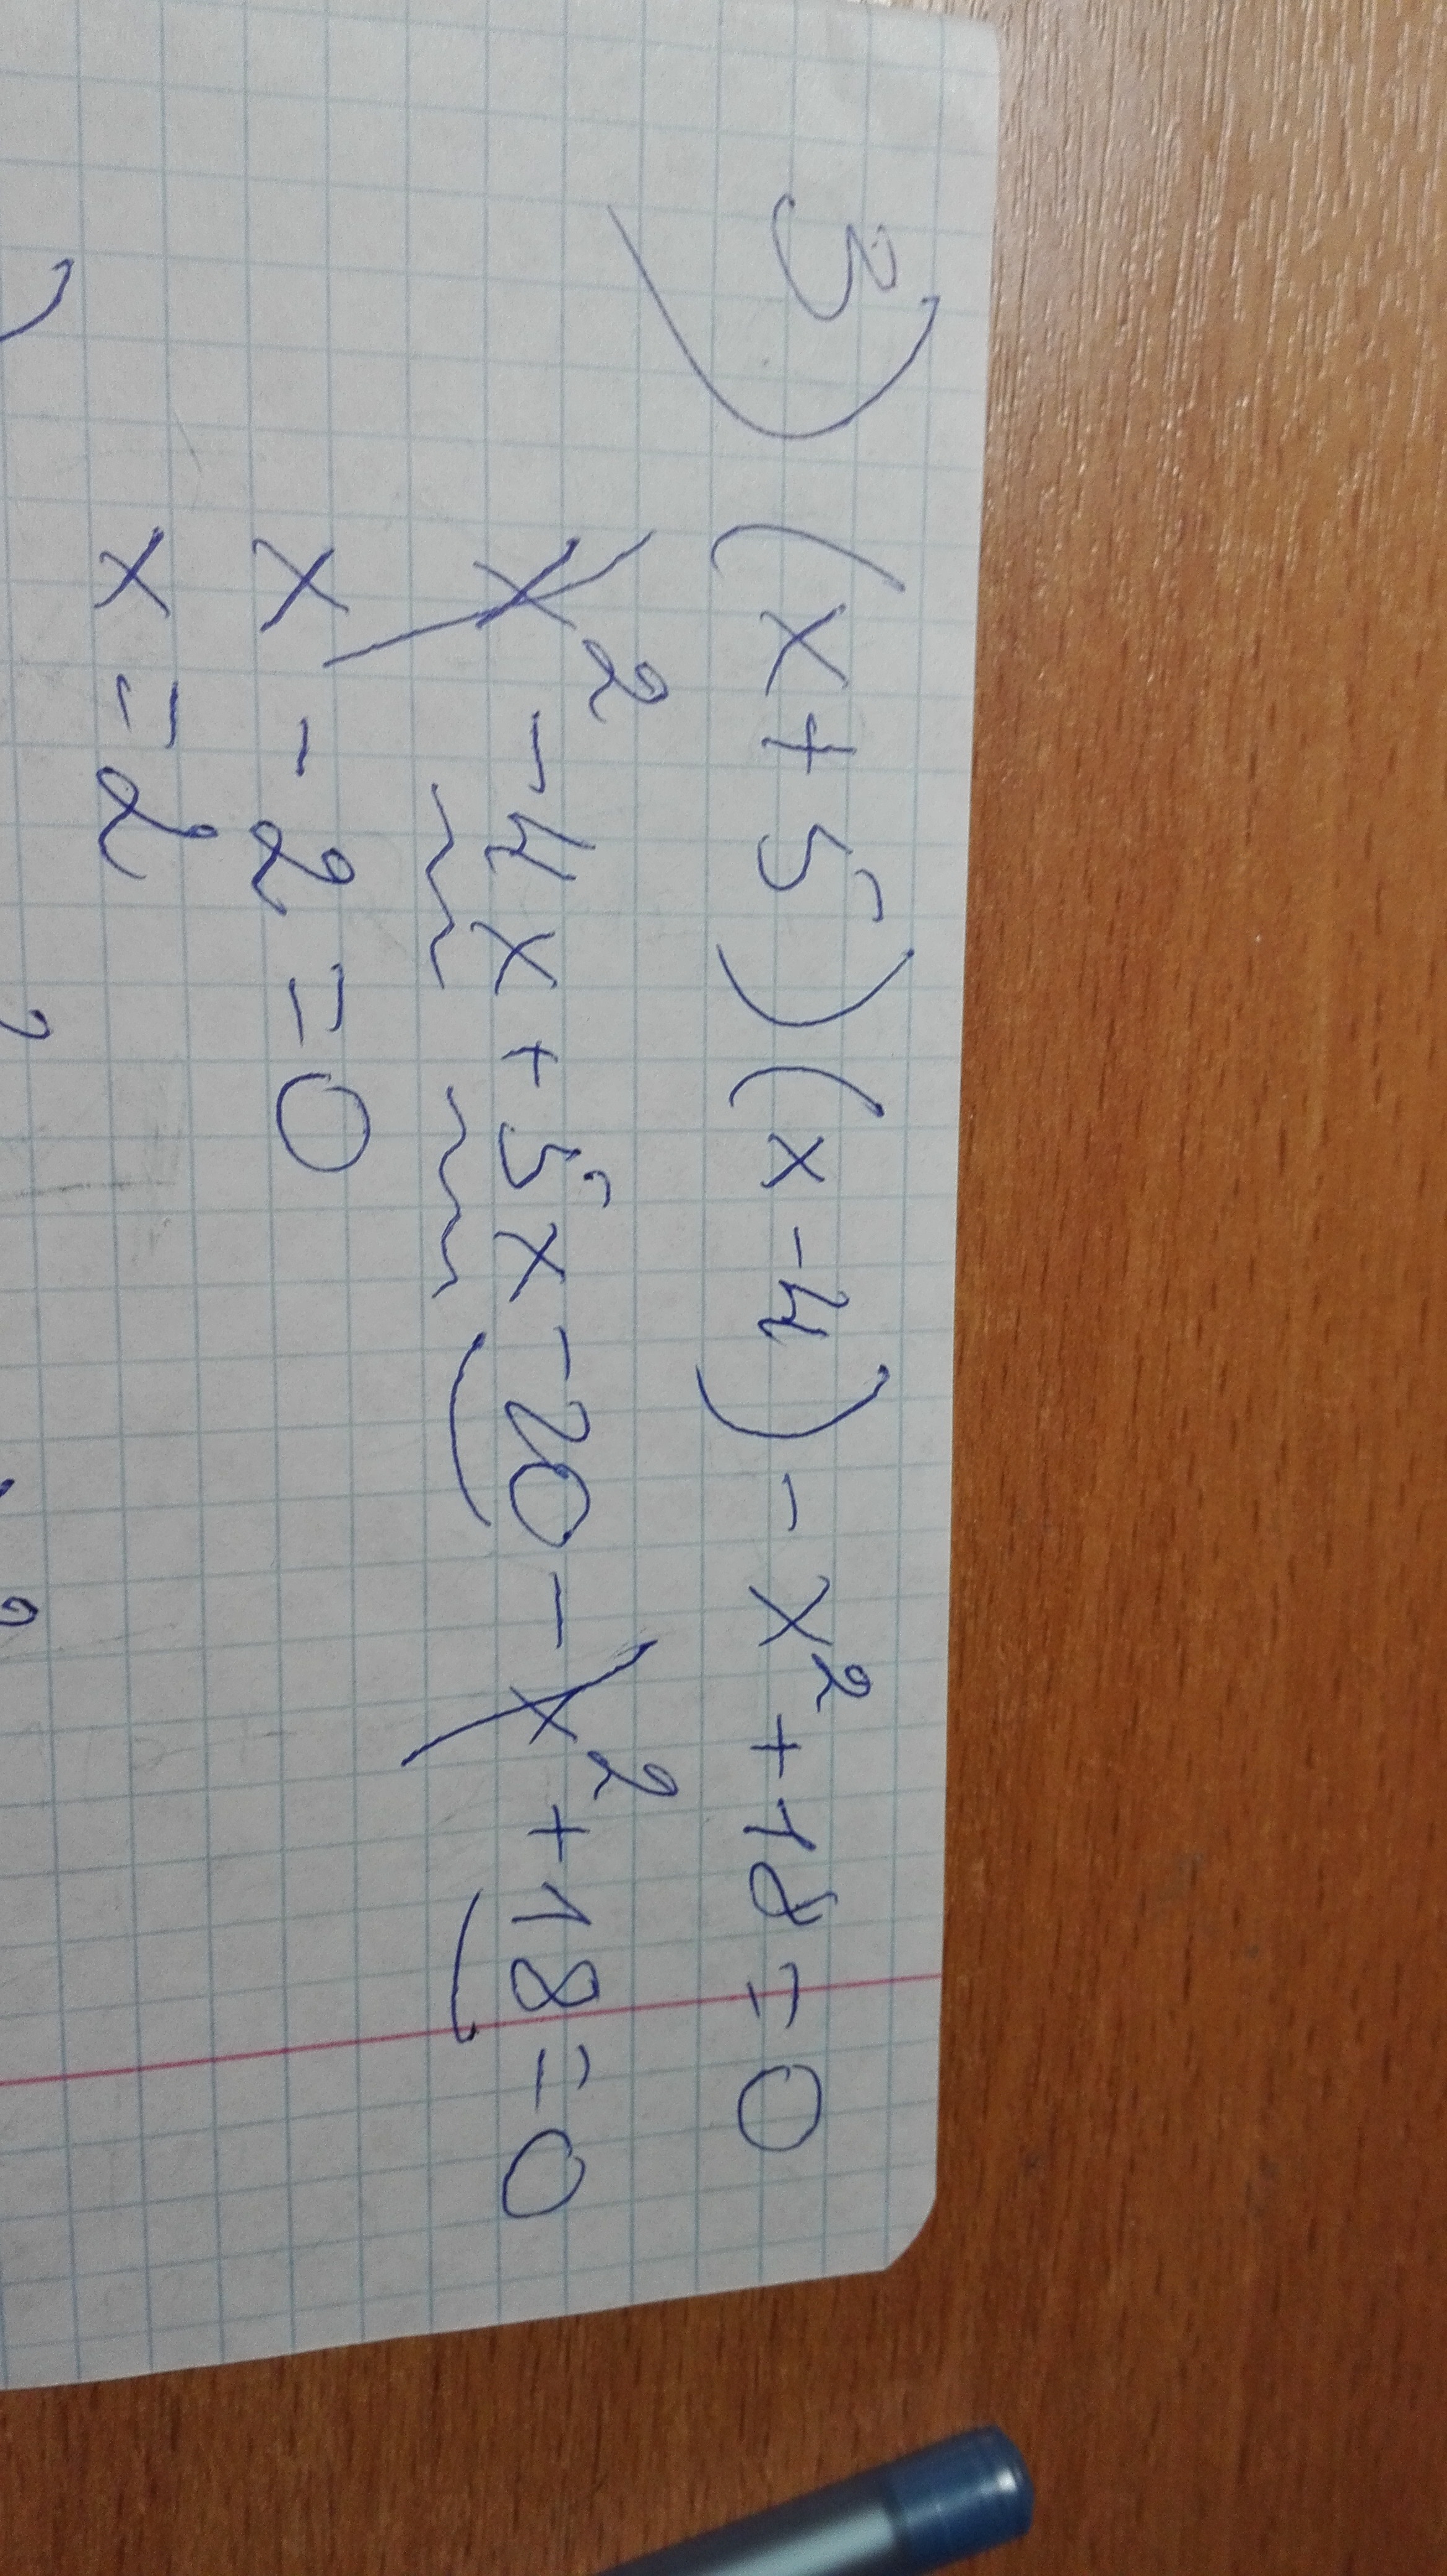 3) (x+5)(x-4)-x²+18=0
x²-4x+5x-20-x²+18=0
x-2=0
x=2